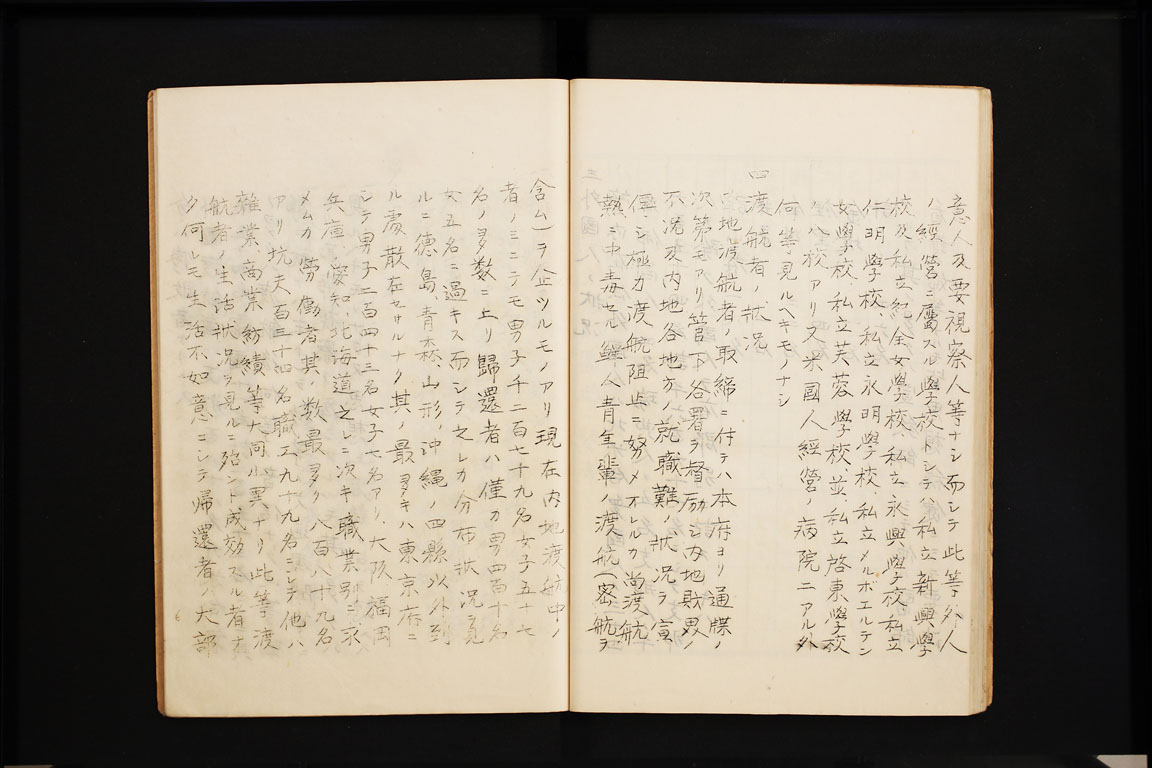 意人及要視察人等ナシ而シテ此等外人
ノ經營ニ屬スル學校トシテハ私立新興學
校及私立紀全女學校、私立永興學校私立
仁明學校、私立永明學校、私立メルボエルテン
女學校、私立芙蓉學校並私立啓東學校
ノ八校アリ又米國人經營ノ病院ニアル外
何等見ルヘキモノナシ
四
渡航者ノ狀況
當地渡航者ノ取締ニ付テハ本府ヨリ通牒ノ
次第モアリ管下各署ヲ督励シ内地財界ノ
不況及内地各地方ノ就職難ノ狀況ヲ宣
傳シ極力渡航阻止ニ努メオレルカ尚渡航
熱ニ中毒セル鮮人青年輩ノ渡航(密航ヲ
含ム)ヲ企ツルモノアリ現在内地渡航中ノ
者ノミニテモ男子千二百七十九名女子五十七
名ノ多数ニ上リ歸還者ハ僅カ男四百十名
女五名ニ過キス而シテ之レカ分布狀況見
ルニ徳島、青森、山形、沖縄ノ四縣以外到
ル處散在セサルナク其ノ最多キハ東京府ニ
シテ男子二百四十三名女子七名アリ、大阪福岡
兵庫、愛知、北海道之レニ次キ職業別ニ求
メムカ勞働者其ノ数最多ク八百八十九名
アリ坑夫百三十四名職工九十九名ニシテ他ハ
雜業、商業紡績等大同小異ナリ此等渡
航者ノ生活狀況ヲ見ルニ殆ント成効スル者ナ
ク何レモ生活不如意ニシテ帰還者ノ大部